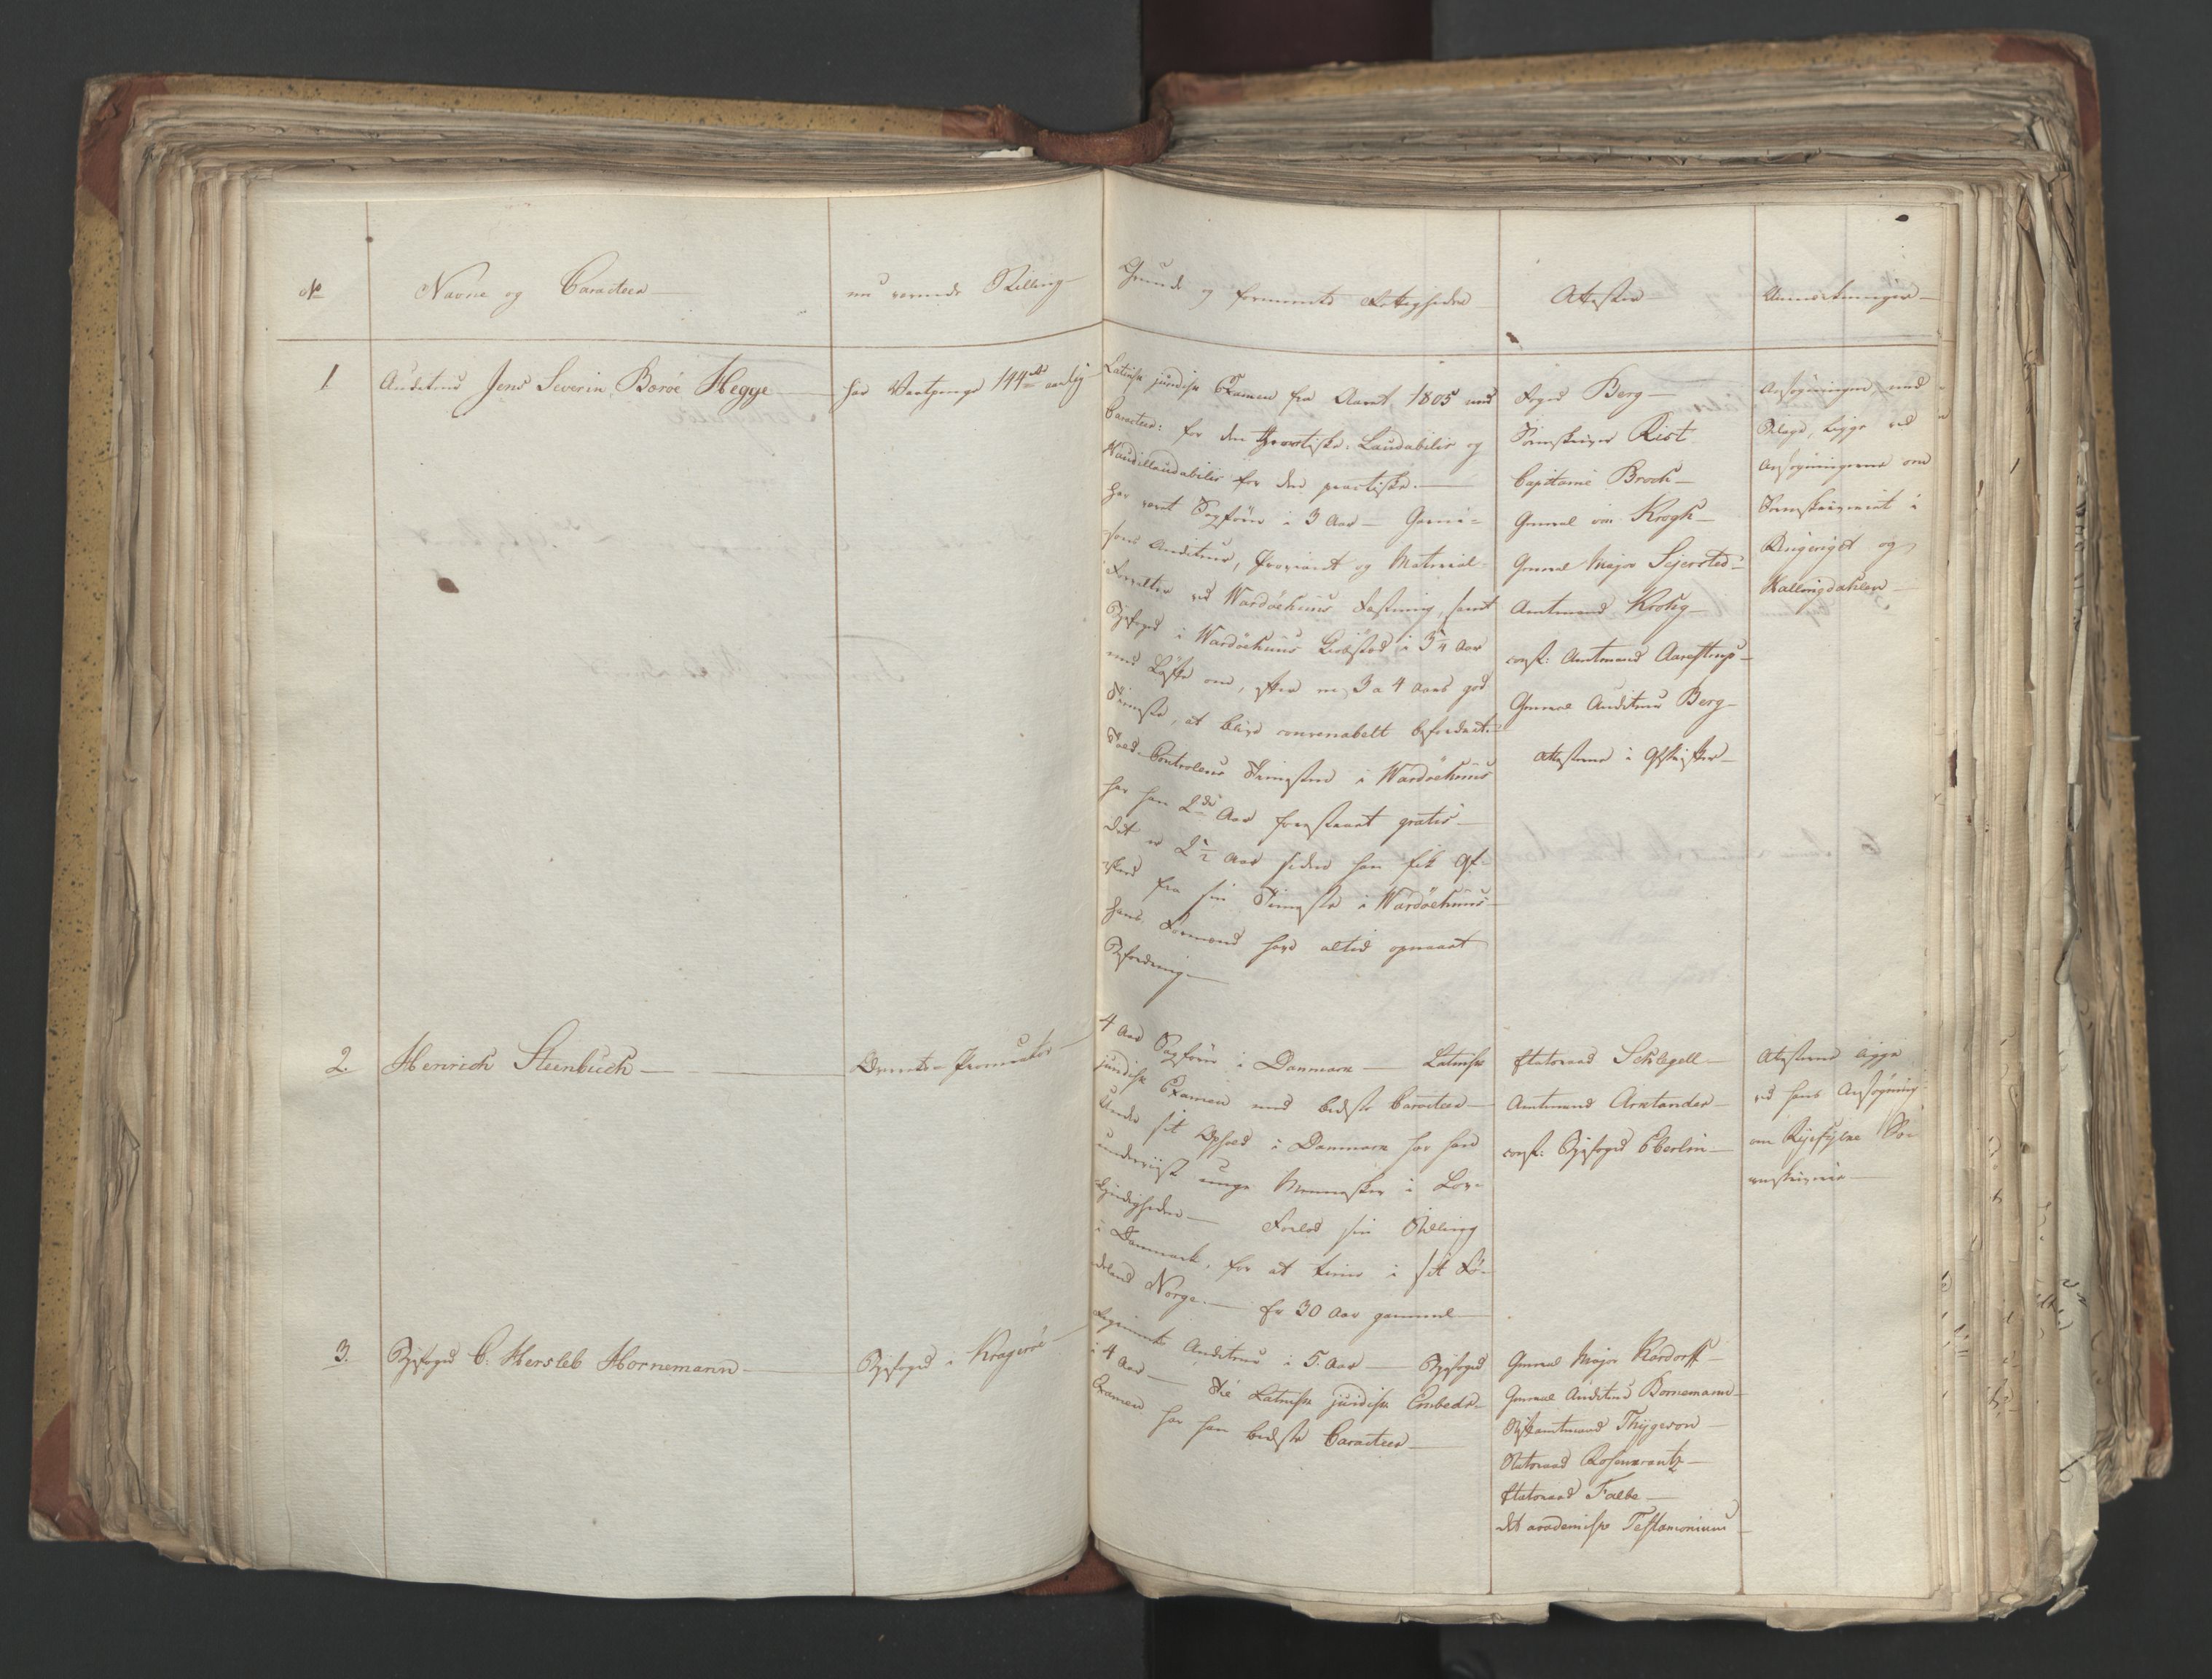 No
Navne og Caracteer
nu værende Stilling
Grunde og formeente Rettigheder
Attester
Anmærkninger
1
Auditeur Jens Severin Boröe Hegge
har Vartpenge 144 rd aarlig
Latinsk juridisk Examen fra Aaret 1805 med
Caracteer: for den theoretiske: Laudabilis og
Haudillaudabilis for den practiske.
har været Sagfører i 3 Aar — Garni-
sons Auditeur, Proviant og Material-
Forvalter ved Wardöehuus Fæstning, samt
Byfoged i Wardöehuus Kiøbstad i 3 1/4 Aar
med Løfte om, efter en 3 a 4 Aars god
Tieneste, at blive convenabelt befordret.
Told-Controleur Tienesten i Wardöehuus
har han 2de Aar forestaaet gratis —
Det er 2 1/2 Aar siden han fik Af-
skeed fra sin Tieneste i Wardöehuus
hans Formænd have altid opnaaet
Befordring —
Foged Berg —
Sorenskriver Rist
Capitaine Broch —
General von Krogh —
General Major Sejersted —
Amtmand Krohg —
const: Amtmand Aarestrup —
General Auditeur Berg —
Attesterne i Afskrifter —
Ansøgningen med
Bilage, ligge ved
Ansøgningerne om
Sorenskriveriet i
Ringeriget og
Hallingdahlen —
2.
Henrich Steenbuch —
Overrets-Procurator
4 Aar Sagfører i Danmark — Latinsk
juridisk Examen med bedste Caracteer —
Under sit Ophold i Danmark har han
underviist unge Mennesker i Lov-
kyndigheden — Forlod sin Stilling
i Danmark, for at tiene i sit Fø-
deland Norge. — Er 30 Aar gammel
Etatsraad Schlegell —
Amtmand Arctander —
const: Byfoged Eberlin —
Attesterne ligge
ved hans Ansøgning
om Ryefylke So-
renskriverie —
3.
Byfoged C. Hersleb Hornemann —
Byfoged i Kragerøe
Regiments Auditeur i 5. Aar — Byfoged
i 4 Aar — Til Latinsk juridisk Embeds-
Examen har han bedste Caracteer —
General Major Kardorff —
General Auditeur Bornemann —
Stiftamtmand Thygeson —
Statsraad Rosencrantz —
Etatsraad Falbe —
det academiske Testamonium